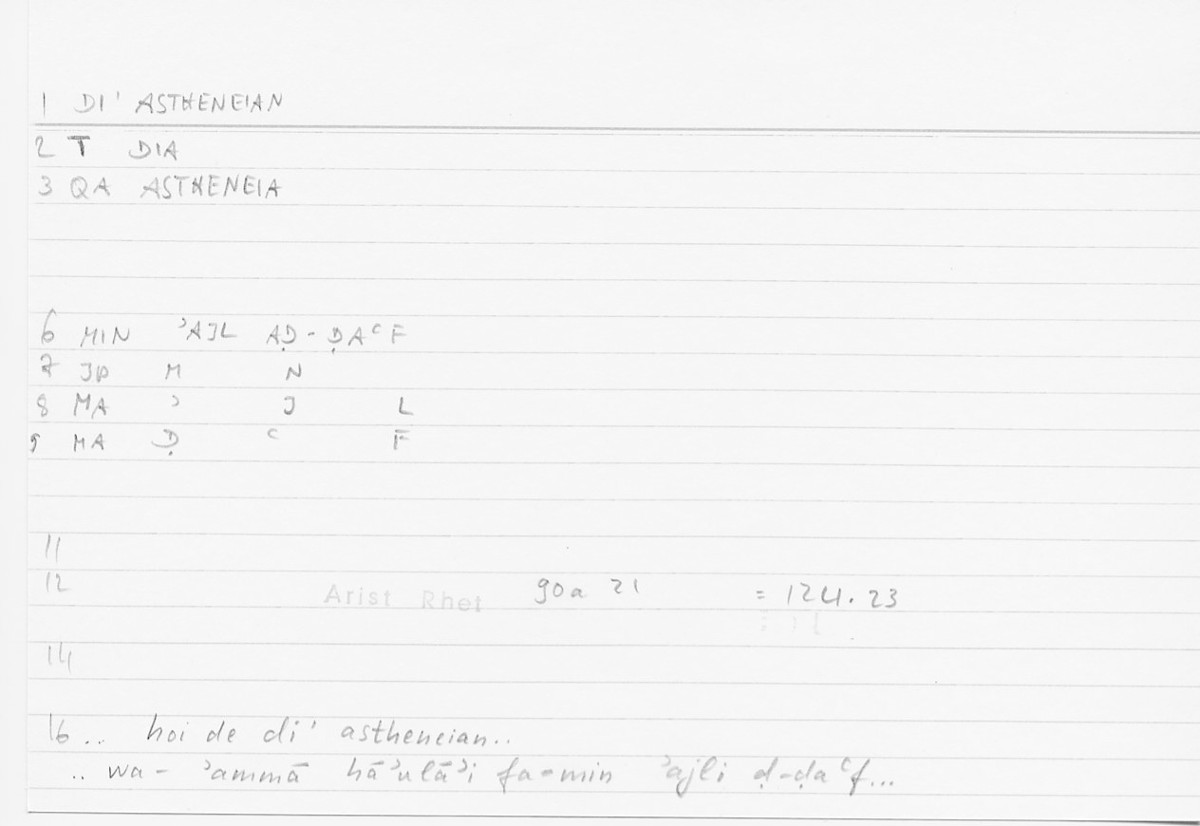 1 DI' ASTHENEIAN
2 T DIA
3 QA ASTHENEIA
6 MIN ʾAJL AḌ-ḌAʿF
7 JP M N
8 MA ʾ J L
9 MA Ḍ ʿ F
11
12 Arist Rhet 90a 21 = 124.23
14
16.. hoi de di' astheneian..
.. wa-ʾammā hāʾulāʾi fa-min ʾajli ḍ-ḍaʿf...